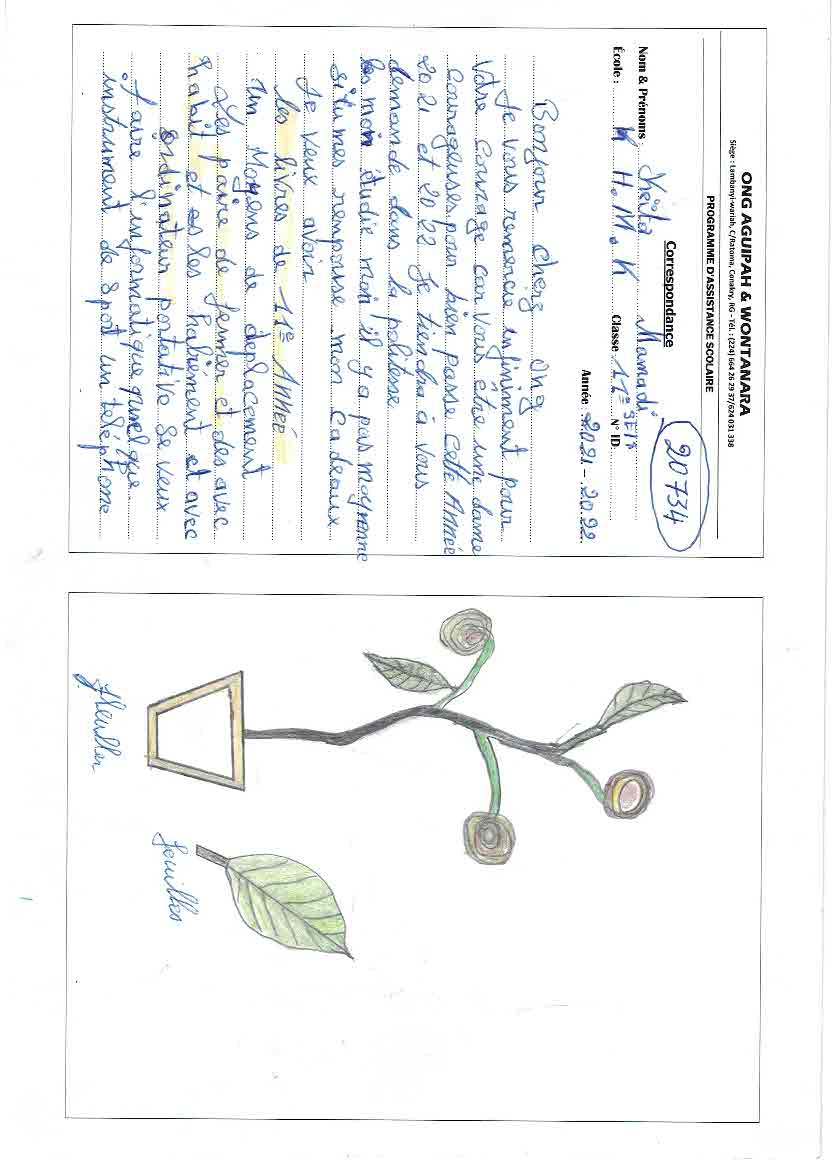 ONG AGUIPAH & WONTANARA
Siège : Lambanyi-wariah, C/Ratoma, Conakry, RG - Tél. : (224) 664 26 29 37/624 031 338
PROGRAMME D'ASSISTANCE SCOLAIRE
20734
Correspondance
Nom & Prénoms Keïta Mamadi
École : K H. M. K Classe 11e N° ID
Année : 2021 - 2022
Bonjour cherz ong
Je vous remercie infiniment pour
votre courage car vous être une dame
Courageuses pour bien passe cette Année
2021 et 2022 Je tiendra à vous
demande dans la politesse
mon étudie moi il y a pas moyenne
si tu mes remponse mon cadeaux
Je veux avoir
les livres de 11e Année
un Moyens de deplacement
Les paire de fermer et des avec
habit et es les habiément et avec
ordinateur portative Se veux
faire l'informatique quuelque
instrument de Sport un teléphone
fleuller
feuilles